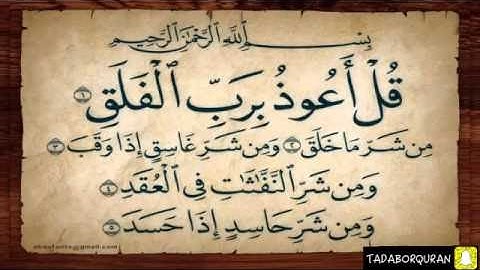 بِسْمِ ٱللَّهِ ٱلرَّحْمَٰنِ ٱلرَّحِيمِ
قُلْ أَعُوذُ بِرَبِّ ٱلْفَلَقِ ١
مِن شَرِّ مَا خَلَقَ ٢ وَمِن شَرِّ غَاسِقٍ إِذَا وَقَبَ ٣
وَمِن شَرِّ ٱلنَّفَّٰثَٰتِ فِى ٱلْعُقَدِ ٤
وَمِن شَرِّ حَاسِدٍ إِذَا حَسَدَ ٥
TADABORQURAN